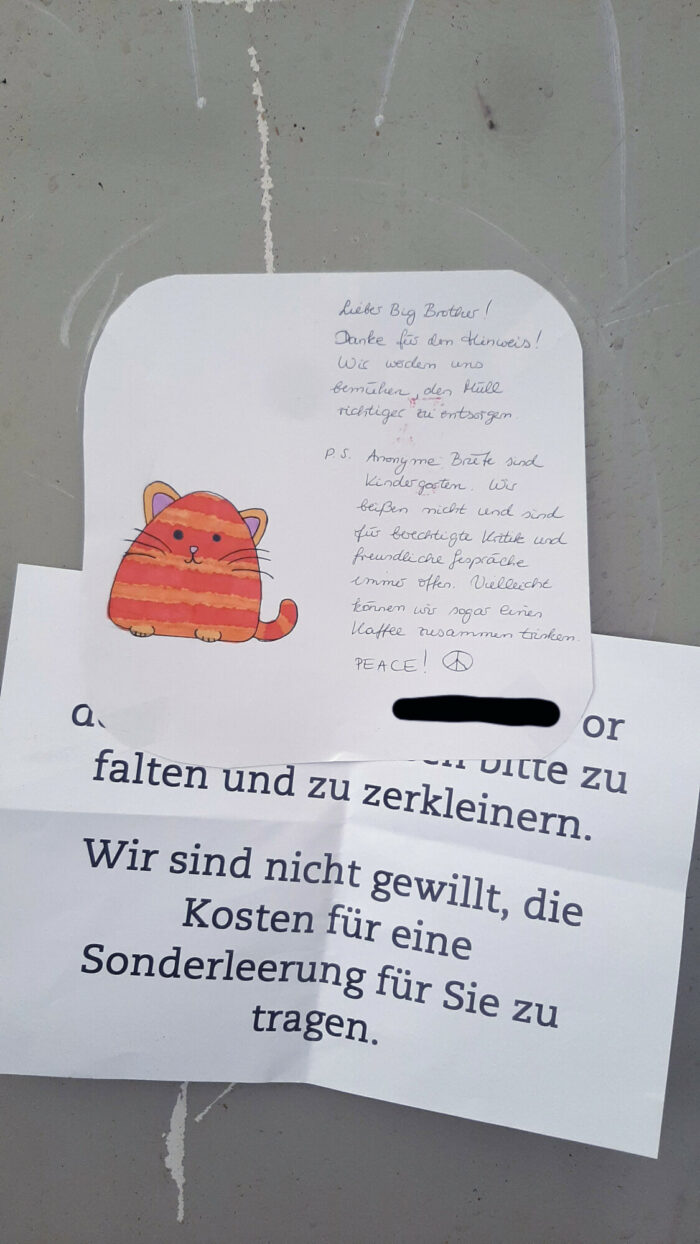 Lieber Big Brother!
Danke für den Hinweis!
Wir werden uns
bemühen, den Müll
richtiger zu entsorgen.
P.S. Anonyme Briefe sind
Kindergarten. Wir
beißen nicht und sind
für berechtigte Kritik und
freundliche Gespräche
immer offen. Vielleicht
können wir sogar einen
Kaffee zusammen trinken.
PEACE!
bitte zu
falten und zu zerkleinern.
Wir sind nicht gewillt, die
Kosten für eine
Sonderleerung für Sie zu
tragen.